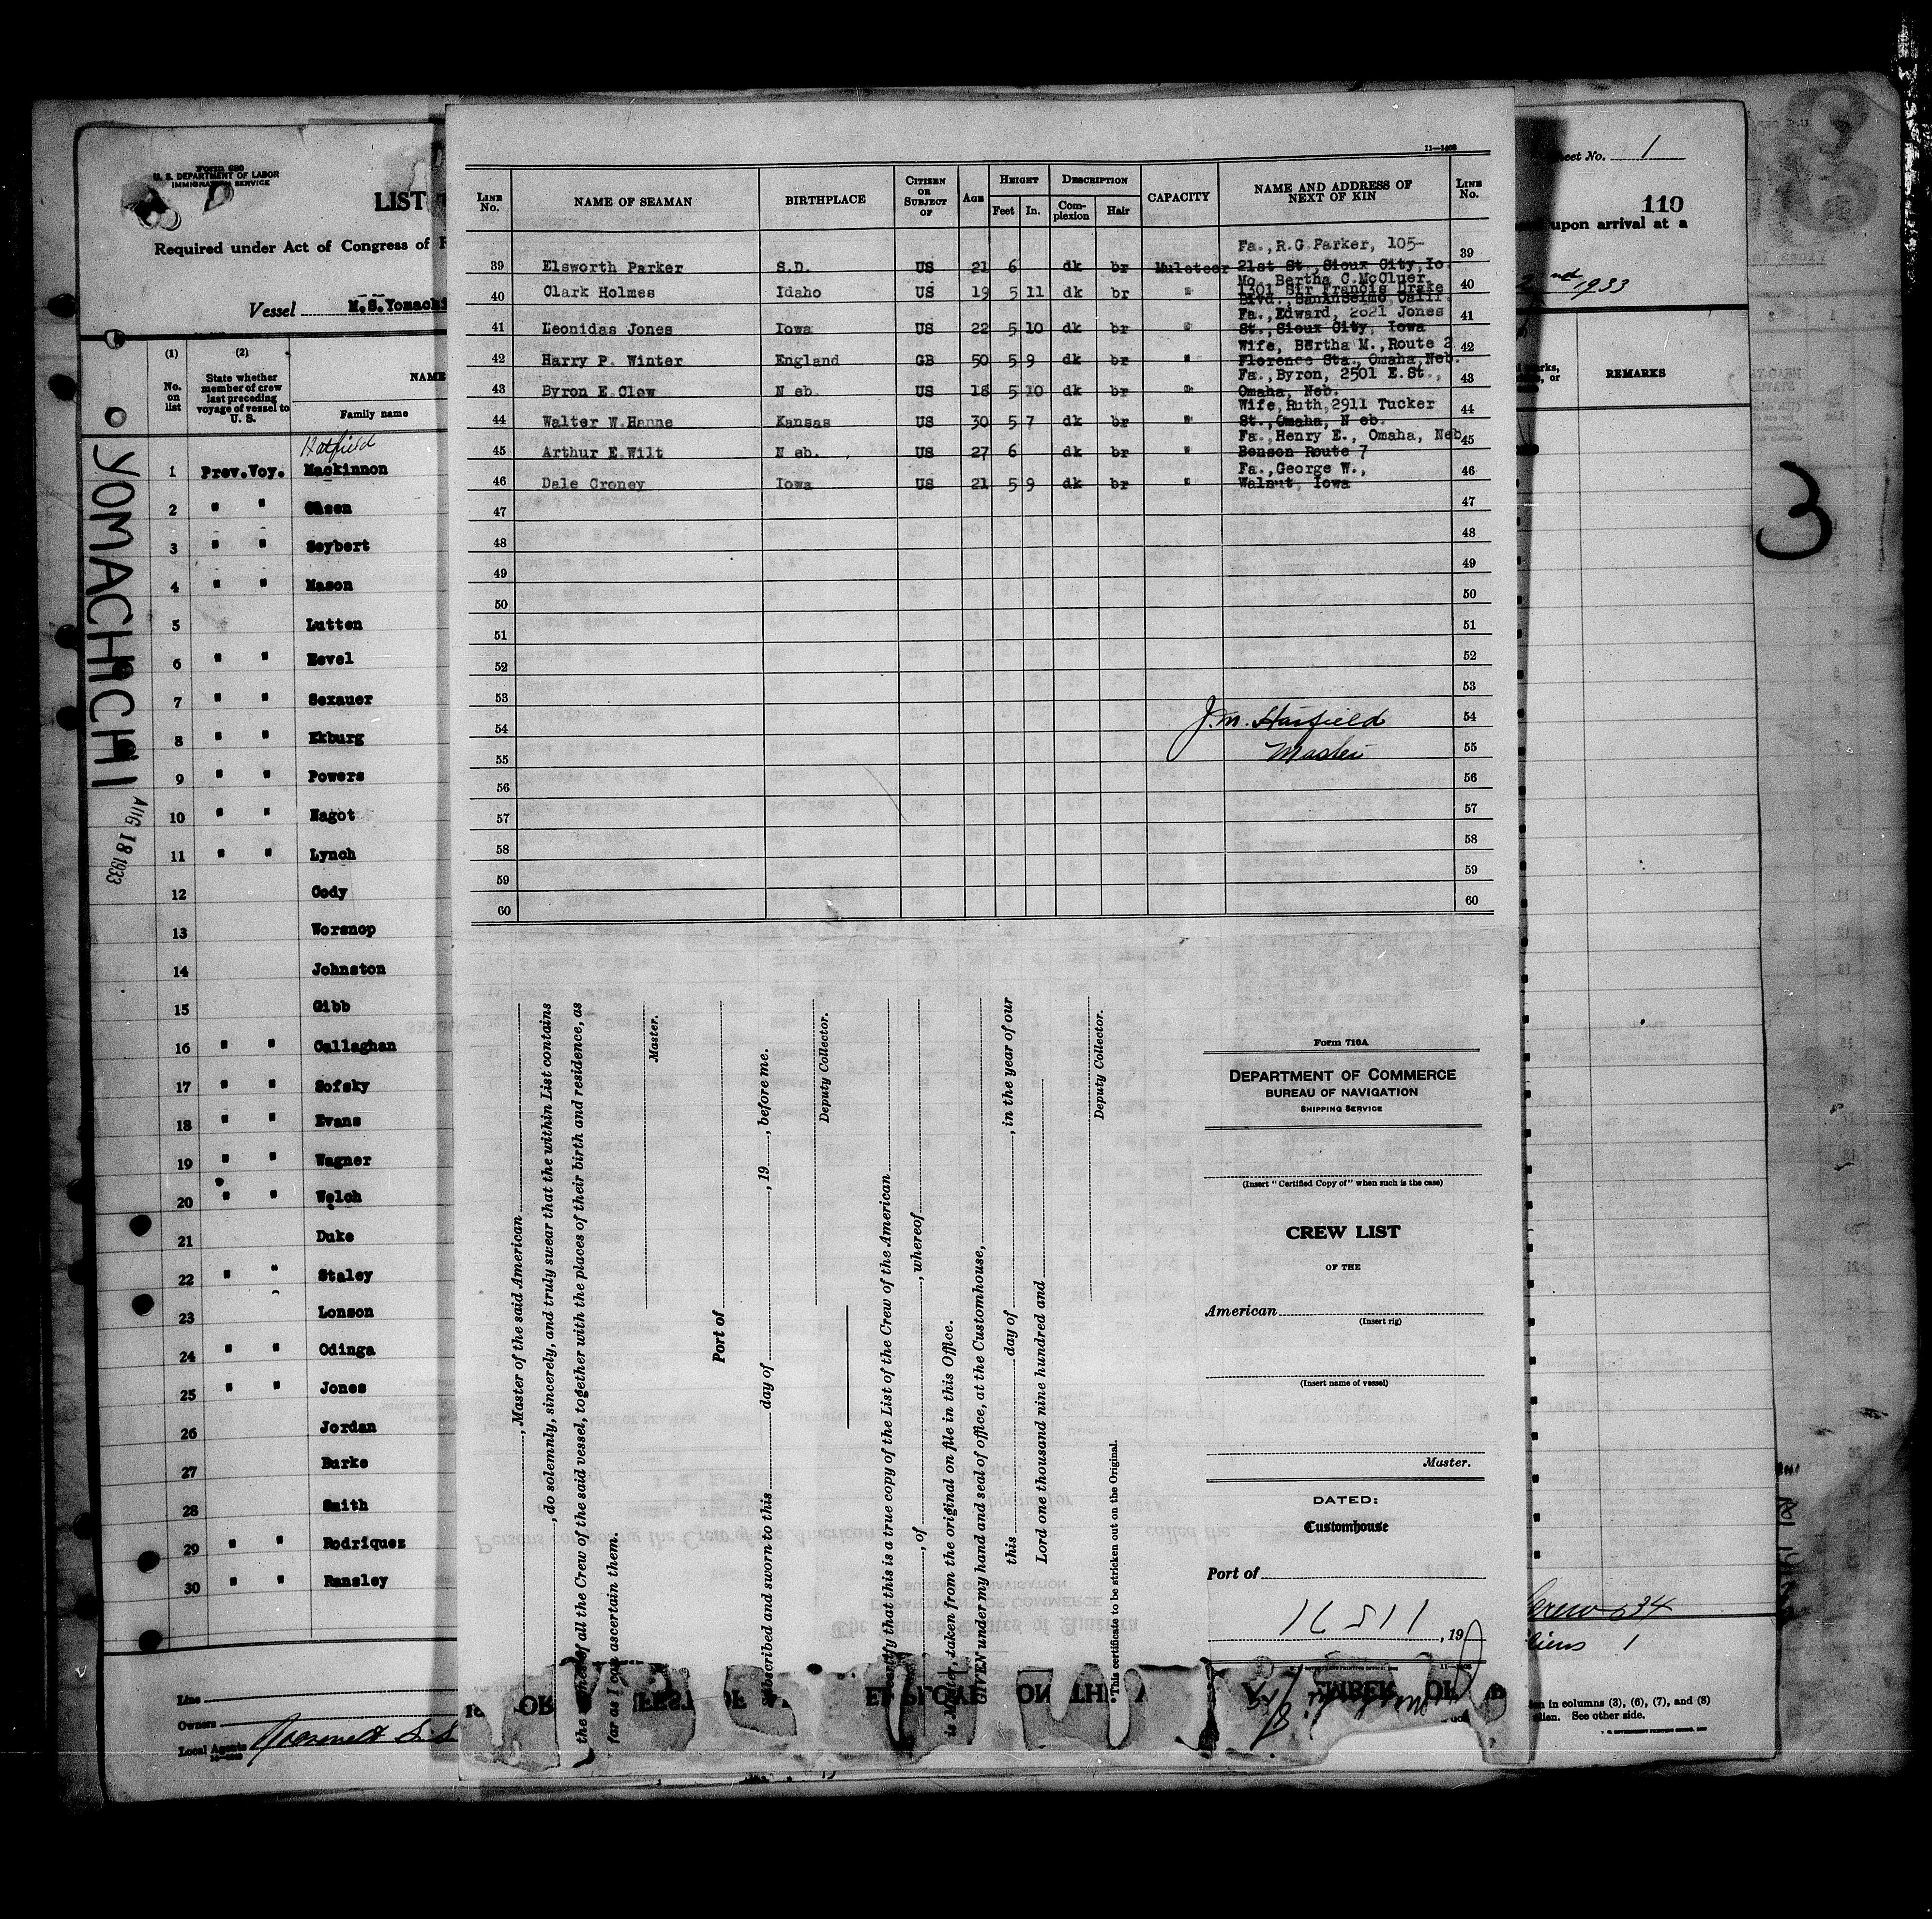 Form 680
U. S. DEPARTMENT OF LABOR
IMMIGRATION SERVICE
LIST
Required under Act of Congress of
Vessel M.S. Yomachi
(1) (2)
No. on list
State whether member of crew last preceding voyage of vessel to U. S.
NAME
Family name
Hatfield
1 Prev.Voy. Mackinnon
2 " " Olsen
3 " " Seybert
4 " " Mason
5 Lutten
6 " "
7 " " Sexauer
8 " " Ekburg
9 " " Powers
10 " " Nagot
11 " " Lynch
12 Cody
13 Worsnop
14 Johnston
15 Gibb
16 " " Callaghan
17 " " Sofsky
18 " " Evans
19 " " Wagner
20 " " Welch
21 Duke
22 " " Staley
23 Lonson
24 " " Odinga
25 " " Jones
26 Jordan
27 Burke
28 Smith
29 " " Rodriquez
30 " " Ransley
Line
Owners
Local Agents
YOMACHICHI
AUG 18 1933
11—1408
LINE No. NAME OF SEAMAN BIRTHPLACE CITIZEN OR SUBJECT OF AGE HEIGHT Feet In. DESCRIPTION Complexion Hair CAPACITY NAME AND ADDRESS OF NEXT OF KIN LINE No.
Fa.,R.G.Parker, 105-
39 Elsworth Parker S.D. US 21 6 dk br Muleteer 21st St.,Sioux City,Io. 39
Mo. Bertha C.McCluer,
40 Clark Holmes Idaho US 19 5 11 dk br " 1301 Sir Francis Drake 40
Blvd., SanAnselmo,Calif.
Fa.,Edward, 2621 Jones
41 Leonidas Jones Iowa US 22 5 10 dk br " St., Sioux City, Iowa 41
Wife, Bertha M.,Route 2
42 Harry P. Winter England GB 50 5 9 dk br " Florence Sta., Omaha,Neb. 42
Fa.,Byron, 2501 E.St.,
43 Byron E.Clow N eb. US 18 5 10 dk br " Omaha, Neb. 43
Wife,Ruth,2911 Tucker
44 Walter W.Hanne Kansas US 30 5 7 dk br " St.,Omaha, N eb. 44
Fa.,Henry E., Omaha, Neb
45 Arthur E.Wilt N eb. US 27 6 dk br " Benson Route 7 45
Fa.,George W.,
46 Dale Croney Iowa US 21 5 9 dk br " Walnut, Iowa 46
47 47
48 48
49 49
50 50
51 51
52 52
53 53
54 J. M. Hatfield 54
55 Master 55
56 56
57 57
58 58
59 59
60 60
, Master of the said American
, do solemnly, sincerely, and truly swear that the within List contains
the names of all the Crew of the said vessel, together with the places of their birth and residence, as
far as I can ascertain them.
Master.
Port of
Subscribed and sworn to this day of , 19 , before me.
Deputy Collector.
certify that this is a true copy of the List of the Crew of the American
, of , whereof
is Master, taken from the original on file in this Office.
GIVEN under my hand and seal of office, at the Customhouse,
this day of , in the year of our
Lord one thousand nine hundred and
Deputy Collector.
*This certificate to be stricken out on the Original.
Form 710A
DEPARTMENT OF COMMERCE
BUREAU OF NAVIGATION
SHIPPING SERVICE
(Insert "Certified Copy of" when such is the case)
CREW LIST
OF THE
American
(Insert rig)
(Insert name of vessel)
Master.
DATED:
Customhouse
Port of
, 19
Sheet No. 1
110
upon arrival at a
2nd 1933
REMARKS
3
Crew 34
liens 1
in columns (3), (6), (7), and (8)
alien. See other side.